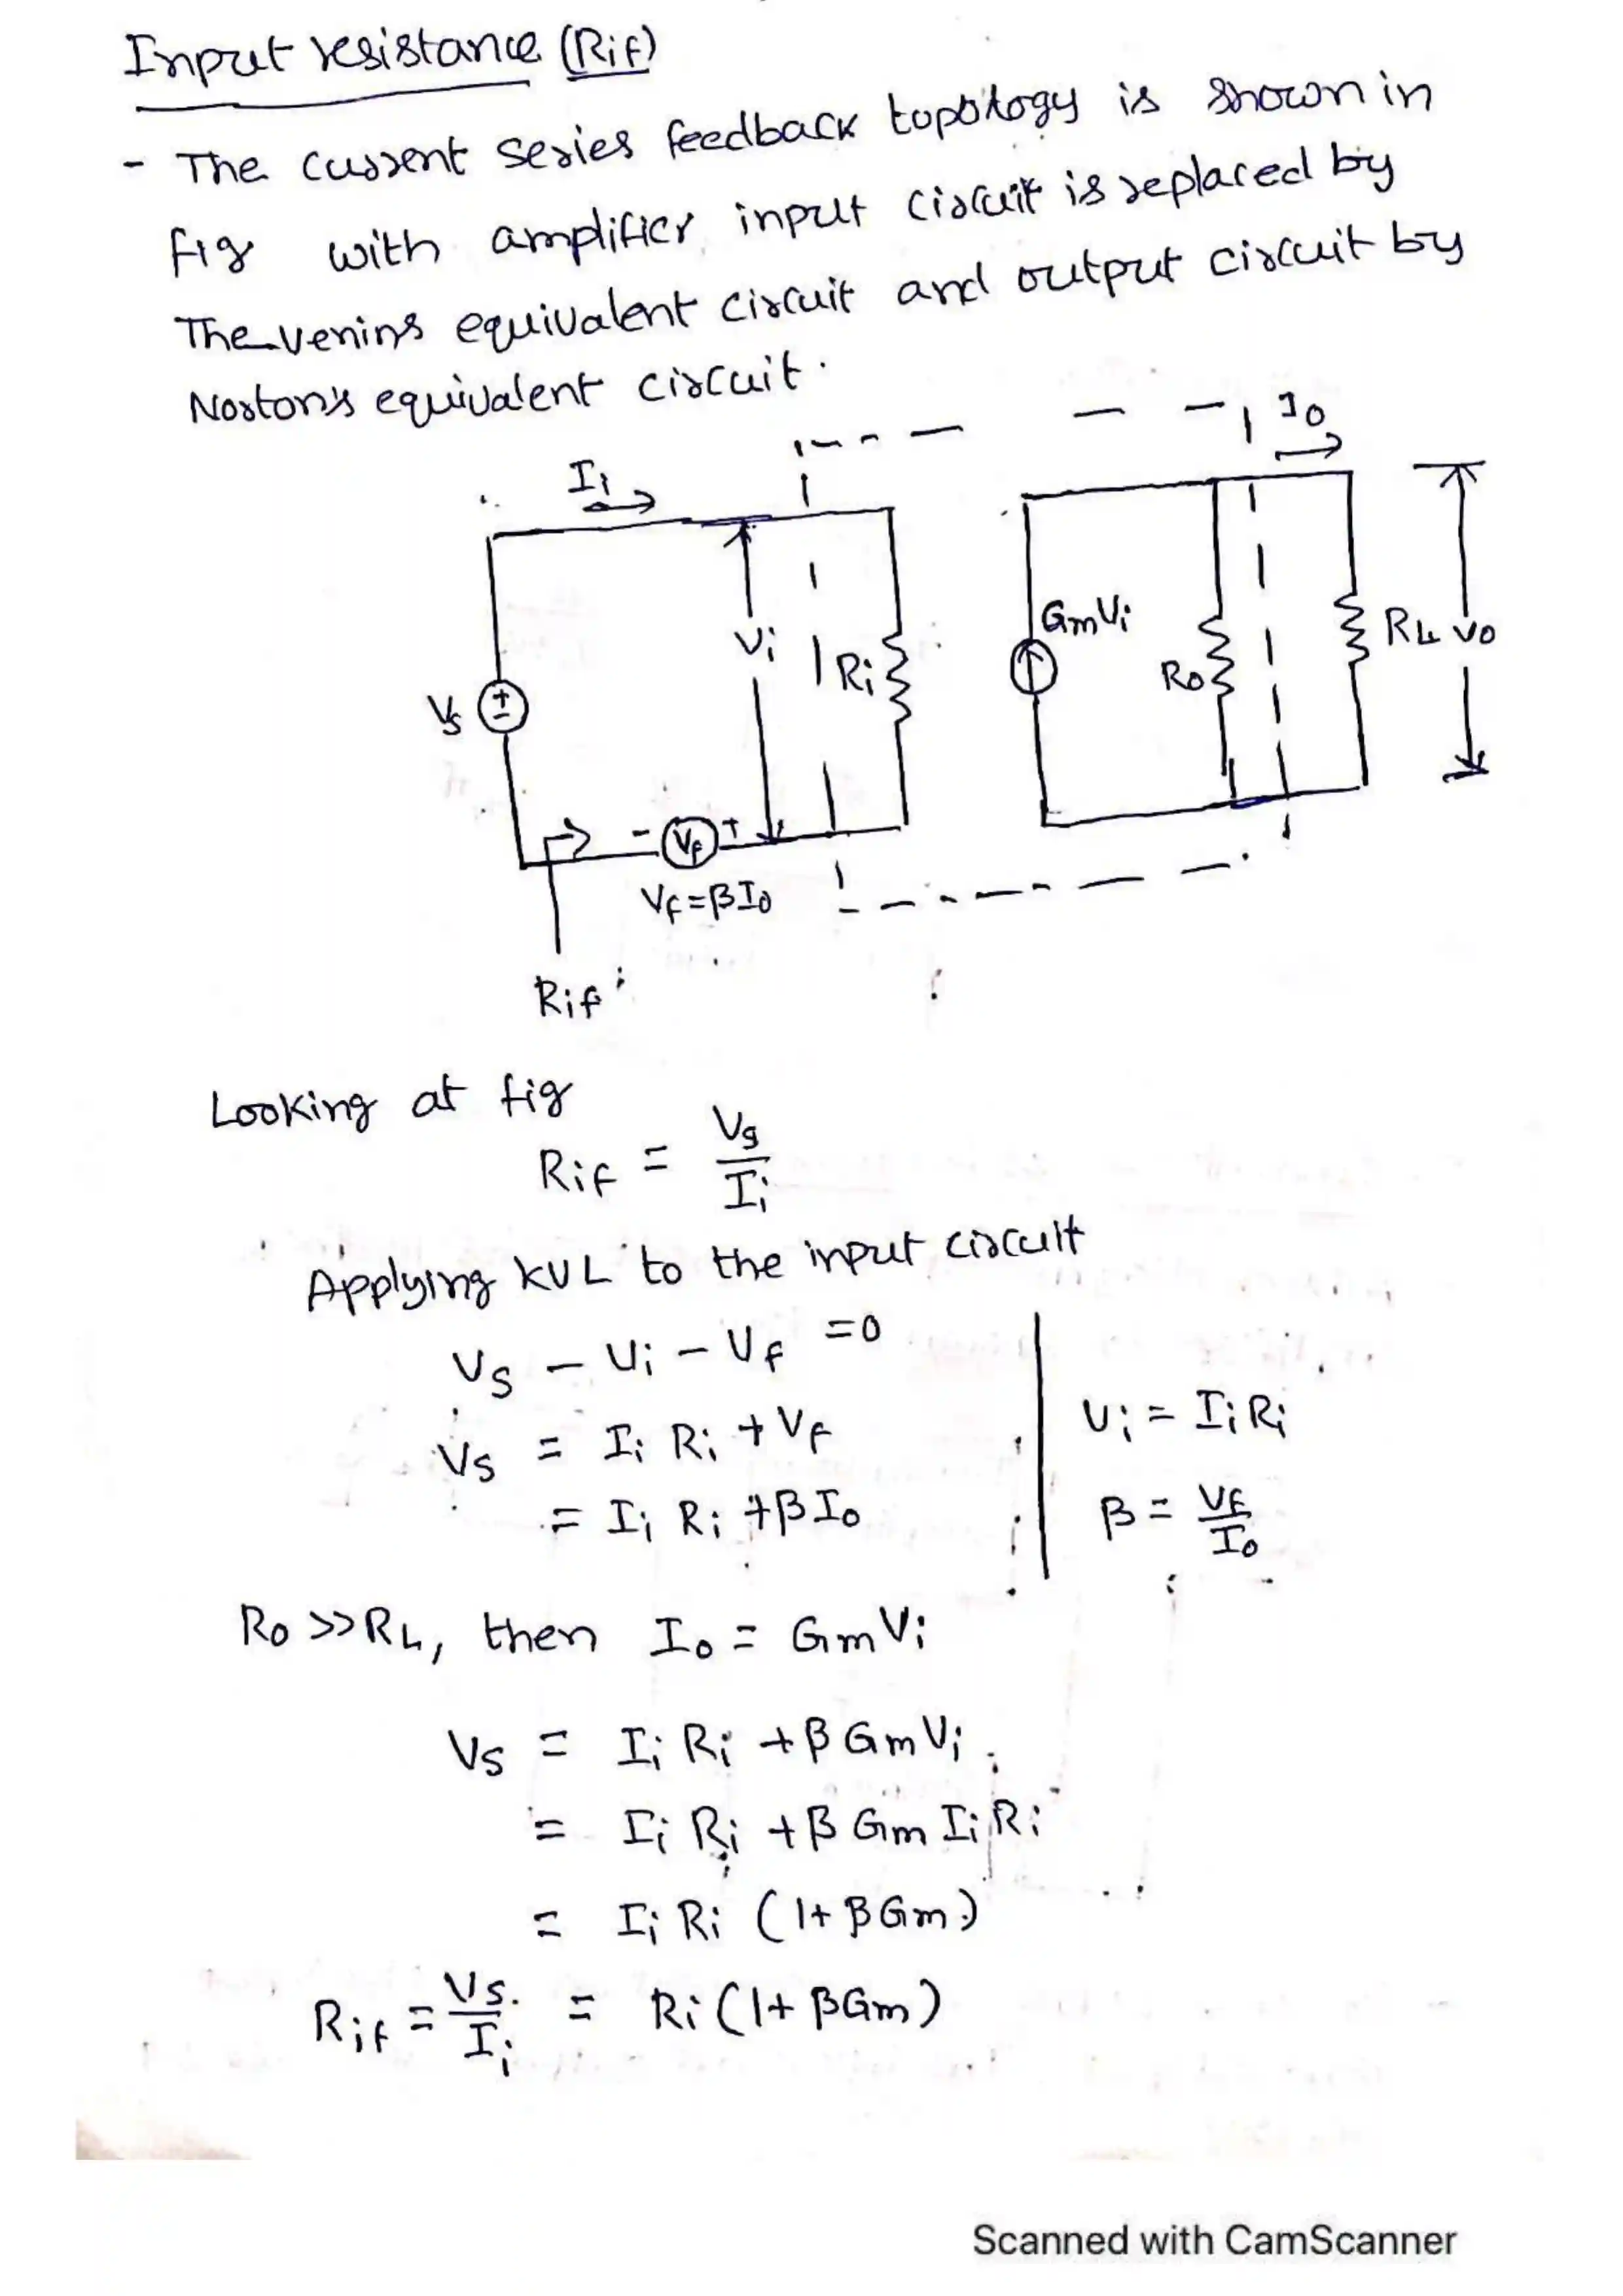 Input resistance (Rif)
- The current series feedback topology is shown in
fig with amplifier input circuit is replaced by
Thevenins equivalent circuit and output circuit by
Norton's equivalent circuit.
Ii
Io
Vs
Vi
Ri
GmVi
Ro
RL
Vo
- Vf +
Vf = βIo
Rif
Looking at fig
Rif = Vs / Ii
Applying KVL to the input circuit
Vs - Vi - Vf = 0
Vs = Ii Ri + Vf
= Ii Ri + βIo
Vi = Ii Ri
β = Vf / Io
Ro >> RL, then Io = Gm Vi
Vs = Ii Ri + β Gm Vi
= Ii Ri + β Gm Ii Ri
= Ii Ri (1 + βGm)
Rif = Vs / Ii = Ri (1 + βGm)
Scanned with CamScanner